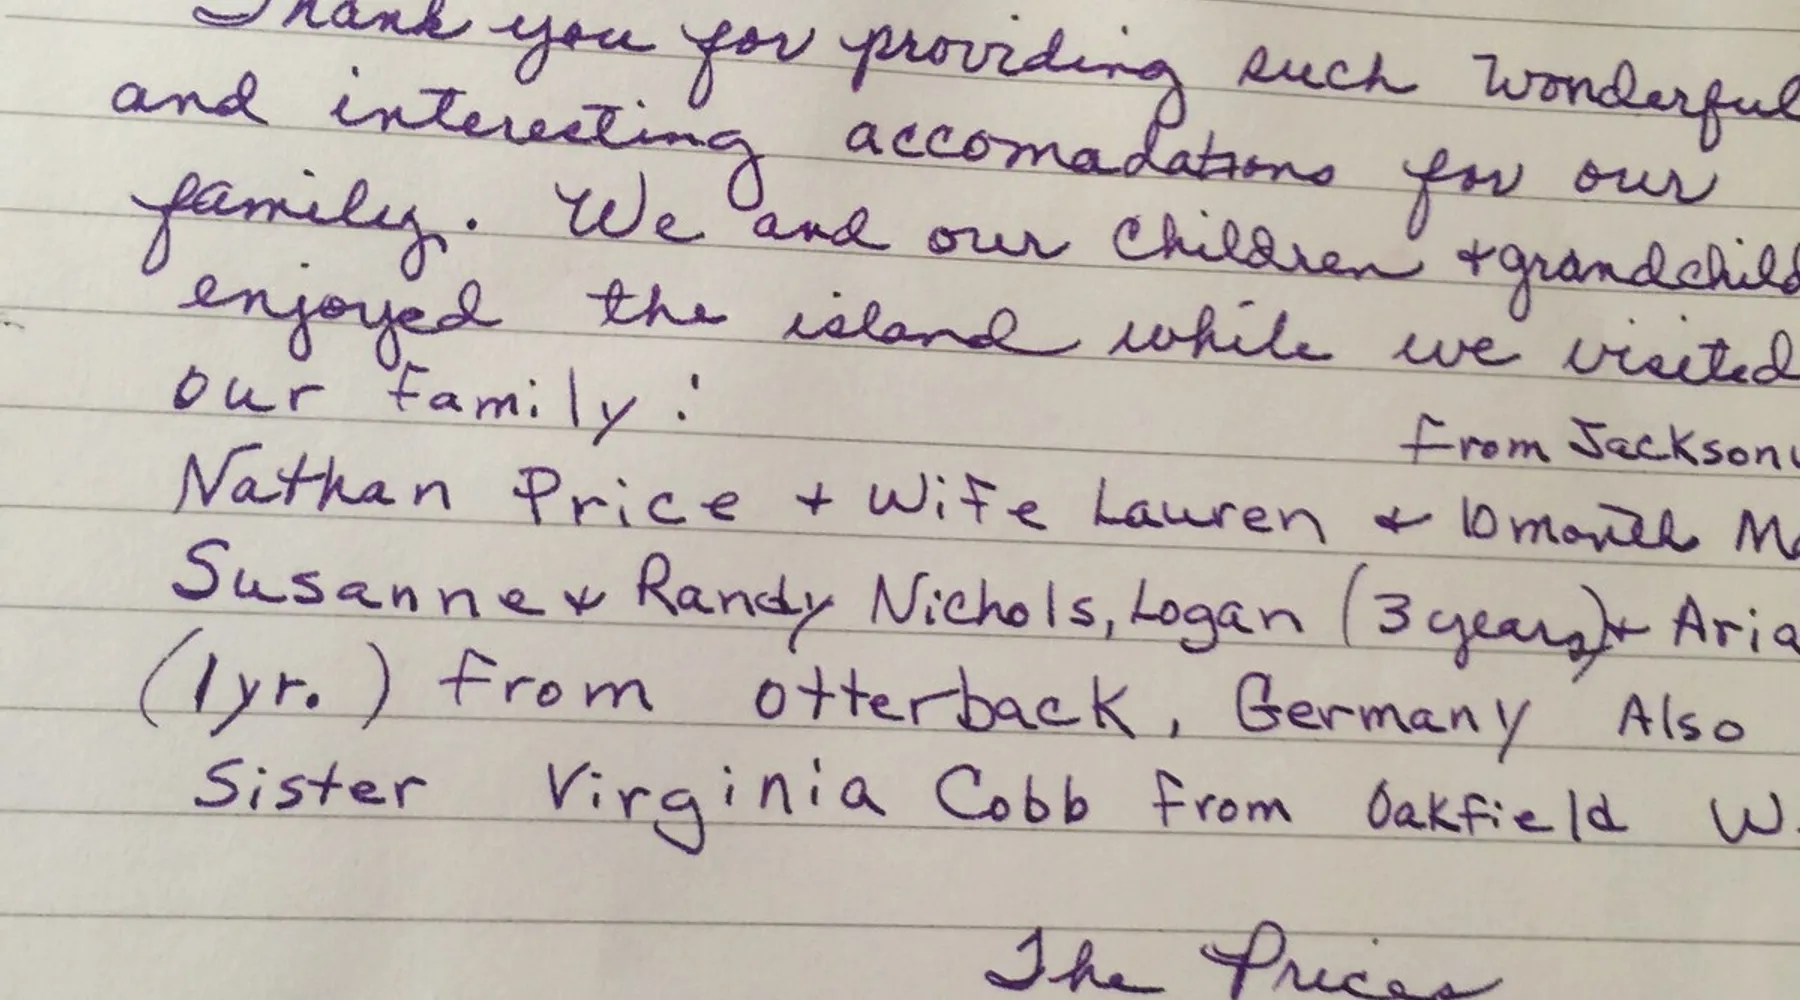 Thank you for providing such wonderful
and interesting accomadations for our
family. We and our children + grandchild
enjoyed the island while we visited
our family:
from Jackson
Nathan Price + Wife Lauren + 10 month
Susanne + Randy Nichols, Logan (3 years) + Aria
(1yr.) from Otterback, Germany Also
Sister Virginia Cobb from Oakfield W.
The Prices